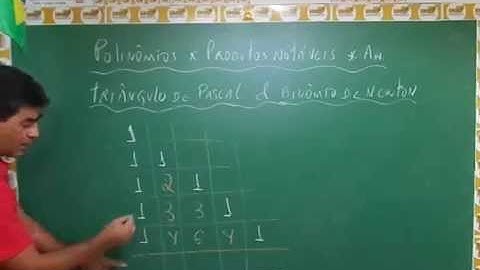 POLINÔMIOS x PRODUTOS NOTÁVEIS x AM
TRIÂNGULO DE PASCAL & BINÔMIO DE NEWTON
1
1 1
1 2 1
1 3 3 1
1 4 6 4 1